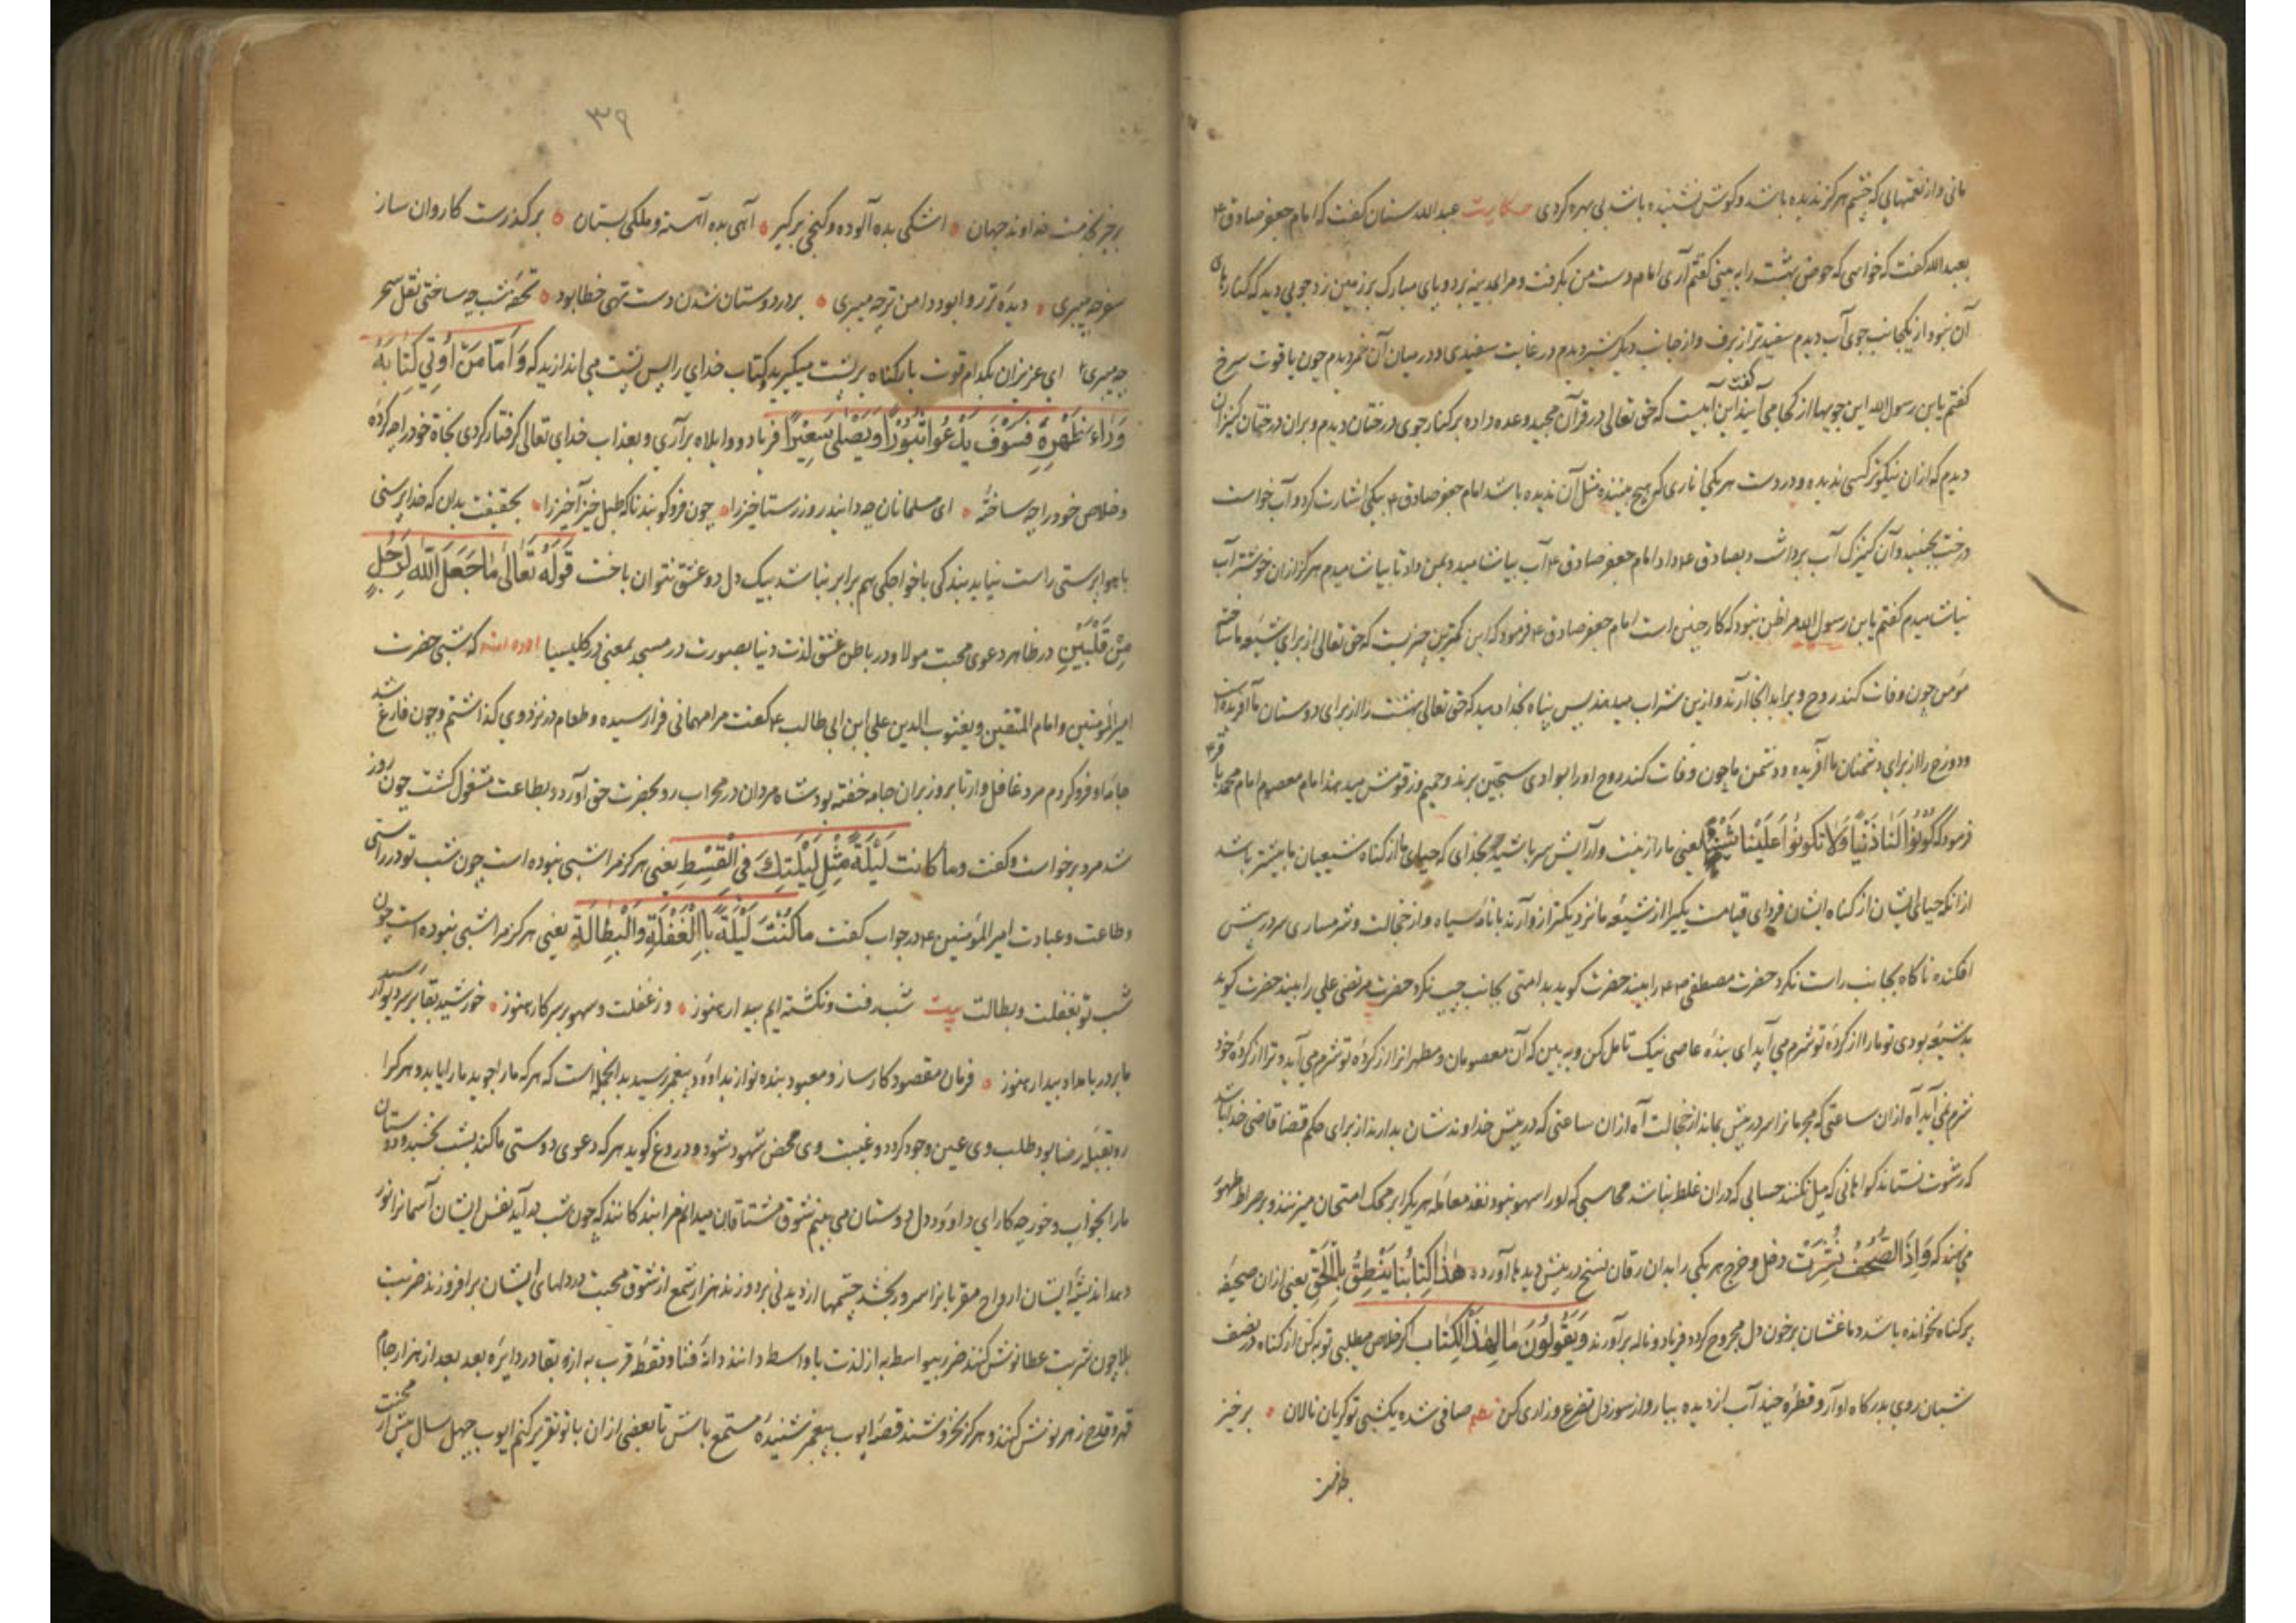 مانی و از نعمتهایی که چشم هرگز ندیده باشد و گوش نشنیده باشد بی بهره کردی حکایت عبدالله سنان گفت که امام جعفر صادق ع
بعبدالله گفت که خواهی که حوض بهشت را به بینی گفتم آری امام دست من بگرفت و مرا بمدینه برد و پای مبارک بر زمین زد جویی دید که کنارهای
آن نبود از یکجانب جوی آب دیدم سفیدتر از برف و از جانب دیگر شیر دیدم در غایت سفیدی و در میان آن خمر دیدم چون یاقوت سرخ
گفتم یا بن رسول الله این جویها از کجا می آیند گفت این آبیست که حق تعالی در قرآن مجید وعده داده بر کنار جوی درختان دیدم و بران درختان کنیزان
دیدم که ازان نیکوتر کسی ندیده و در دست هر یکی اناری که هیچ بیننده مثل آن ندیده باشد امام جعفر صادق ع بیکی اشارت کرد و آب خواست
درخت بجنبید و آن کنیزک آب برداشت و بصادق ع داد امام جعفر صادق ع آب بیاشامید و بمن داد تا بیاشامیدم هرگز ازان خوشتر آب
نیاشامیدم گفتم یا بن رسول الله مرا ظن نبود که کار چنین است امام جعفر صادق ع فرمود که این کمترین چیزیست که حق تعالی از برای شیعه ما ساخته
مؤمن چون وفات کند روح ویرا بدانجا آرند و ازین شراب میدهند پس پناه بخدا دهید که حق تعالی بهشت را از برای دوستان ما آفریده است
و دوزخ را از برای دشمنان ما آفریده و دشمن ما چون وفات کند روح او را بوادی سجین برند و حمیم و زقومش میدهند امام معصوم امام محمد باقر ع
فرمود که كُونُوا لَنَا زَيْنًا وَلَا تَكُونُوا عَلَيْنَا شَيْنًا یعنی ما را زینت و آرایش سر باشید بخدای که حیای ما از کناه شیعیان ما بیشتر باشد
ازانکه حیای ایشان از کناه ایشان فردای قیامت یکیرا از شیعه ما نزدیک ترازو آرند با نامه سیاه و از خجالت و شرمساری سر در پیش
افکنده ناگاه بجانب راست نگرد حضرت مصطفی را بیند حضرت گوید بد امتی بجانب چپ نگرد حضرت مرتضی علی را بیند حضرت گوید
بد شیعه بودی تو ما را از کرده تو شرم می آید ای بنده عاصی نیک تامل کن و به بین که آن معصومان و مطهرانرا از کرده تو شرم می آید و ترا از کرده خود
شرم نمی آید آه ازان ساعتی که مجرمانرا سر در پیش بماند از خجالت آه ازان ساعتی که در پیش خداوندشان بدارند از برای حکم قضا قاضی خدا باشد
که رشوت نستاند گواهانی که میل نکنند حسابی که دران غلط نباشد محاسبی که او را سهو نبود نقد معامله هر یکرا بر محک امتحان میزنند و بر صراط ظهور
می نهند که وَاِذَا الصُّحُفُ نُشِرَتْ دخل و خرج هر یکی را بدان رقان نسخ در پیش دیدها آورده هٰذَا كِتَابُنَا يَنْطِقُ بِالْحَقِّ یعنی ازان صحیفه
پر کناه بخوانده باشد دماغشان پر خون دل مجروح کردد فریاد و ناله برآورند وَيَقُولُونَ مَا لِهٰذَا الْكِتَاب اگر خلاص میطلبی توبه کن از کناه در نصف
شبان روی بدرگاه او آر و قطره چند آب از دیده ببار و از سوز دل تضرع و زاری کن نظم صافی شده یکشبی تو گریان نالان ه برخیز
۳۹
برخیز بخدمت خداوند جهان ه اشکی بده آلوده و گنجی برگیر ه آهی بده آهسته و ملکی بستان ه بر گذرست کاروان ساز
سفر چه میبری ه دیده تر روا بود دامن تر چه میبری ه بر در دوستان شدن دست تهی خطا بود ه تحفه شب چه ساختی نقل سحر
چه میبری ای عزیزان بکدام قوت بار کناه بر پشت میگیرید کتاب خدای را پس پشت می اندازید که وَاَمَّا مَنْ اُوتِيَ كِتَابَهُ
وَرَاءَ ظَهْرِهٖ فَسَوْفَ يَدْعُوا ثُبُورًا وَيَصْلٰى سَعِيرًا فریاد و واویلاه برآری و بعذاب خدای تعالی گرفتار کردی نجاة خود را چه کرده
و خلاص خود را چه ساخته ه ای مسلمانان چه دانید روز رستاخیز را ه چون فرو کوبند ناگه طبل خیزاخیز را ه بحقیقت بدان که خداپرستی
با هواپرستی راست نیاید بندگی با خواجگی هم برابر نباشد بیک دل دو عشق نتوان باخت قَوْلُهُ تَعَالٰى مَا جَعَلَ اللهُ لِرَجُلٍ
مِنْ قَلْبَيْنِ در ظاهر دعوی محبت مولا و در باطن عشق لذت دنیا بصورت در مسجد بمعنی در کلیسیا آورده اند که شبی حضرت
امیرالمؤمنین و امام المتقین و یعسوب الدین علی ابن ابی طالب ع گفت مرا مهمانی فرا رسیده و طعام در نزد وی گذاشتم و چون فارغ شد
جامه او فرو کردم مرد غافل وار تا بروز بران جامه خفته بود شاه مردان در محراب رو بحضرت حق آورد و بطاعت مشغول گشت چون روز
شد مرد برخواست و گفت وما كانت لَيْلَةً مِثْلِ لَيْلَتِكَ فِي الْقِسْطِ یعنی هرگز مرا شبی نبوده است چون شب تو در راستی
و طاعت و عبادت امیرالمؤمنین ع در جواب گفت مَا كُنْتَ لَيْلَةً بِالْغَفْلَةِ وَالْبِطَالَةِ یعنی هرگز مرا شبی نبوده است چون
شب تو بغفلت و بطالت بیت شب رفت و نگشته ایم بیدار هنوز ه وز غفلت و سهو بر سر کار هنوز ه خورشید بقا بر سر دیوار رسید
ما بر در بامداد بیدار هنوز ه فرمان مقصود کارساز و معبود بنده نواز بداوود پیغمبر رسید بدانجمله است که هر که ما را جوید ما را یابد و هر کرا
رو بقبله رضا بود طلب وی عین وجود کردد و غیبت وی محض شهود شود و دروغ گوید هر که دعوی دوستی ما کند بشب بخسبد و دوستان
ما را بخواب و خور چه کار ای داوود دل دوستان می بینم شوق مشتاقان میدانم مرا بندگانند که چون شب درآید نفس ایشان آسمانرا نور
دهد اندیشه ایشان ارواح مقربانرا سرور بخشد چشمها از دیدنی بردوزند هزار شمع از شوق محبت در دلهای ایشان برافروزند ضربت
بلا چون شربت عطا نوش کنند ضرر بیواسطه به از لذت با واسطه دانند دانه فنا و نقطه قرب به ازو بقا در دایره بعد بعد از هزار جام
قهر و قدح زهر نوش کنند و هرگز نخروشند قصه ایوب پیغمبر شنیده مستمع باش تا بعضی ازان با تو تقریر کنم ایوب چهل سال پیش از محنت